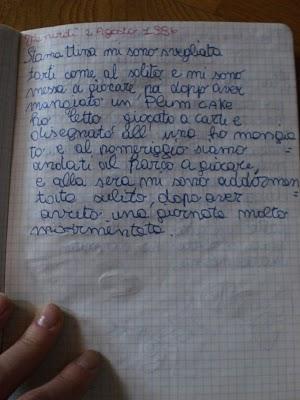 Venerdì 1 Agosto 1986
Stamattina mi sono svegliata
tardi come al solito e mi sono
messa a giocare, poi dopo aver
mangiato un Plum cake
ho letto, giocato a carte e
disegnato all' una ho mangia
to e al pomeriggio siamo
andati al parco a giocare,
e alla sera mi sono addormen=
tata subito, dopo aver
avuto una giornata molto
movimentata.